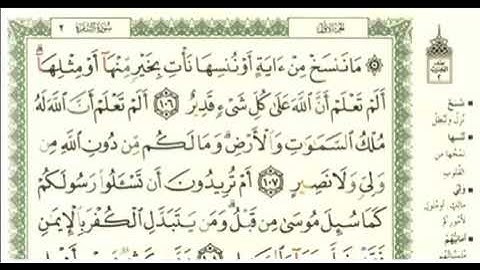 الجزء الأول
سورة البقرة ٢
مَا نَنسَخْ مِنْ ءَايَةٍ أَوْ نُنسِهَا نَأْتِ بِخَيْرٍ مِّنْهَآ أَوْ مِثْلِهَآ
أَلَمْ تَعْلَمْ أَنَّ ٱللَّهَ عَلَىٰ كُلِّ شَىْءٍ قَدِيرٌ ١٠٦ أَلَمْ تَعْلَمْ أَنَّ ٱللَّهَ لَهُۥ
مُلْكُ ٱلسَّمَٰوَٰتِ وَٱلْأَرْضِ وَمَا لَكُم مِّن دُونِ ٱللَّهِ مِن
وَلِىٍّ وَلَا نَصِيرٍ ١٠٧ أَمْ تُرِيدُونَ أَن تَسْـَٔلُوا۟ رَسُولَكُمْ
كَمَا سُئِلَ مُوسَىٰ مِن قَبْلُ وَمَن يَتَبَدَّلِ ٱلْكُفْرَ بِٱلْإِيمَٰنِ
نَنسَخْ
نُنسِهَا
نمحها من
القلوب
وَلِيّ
أَمَانِيُّهُمْ